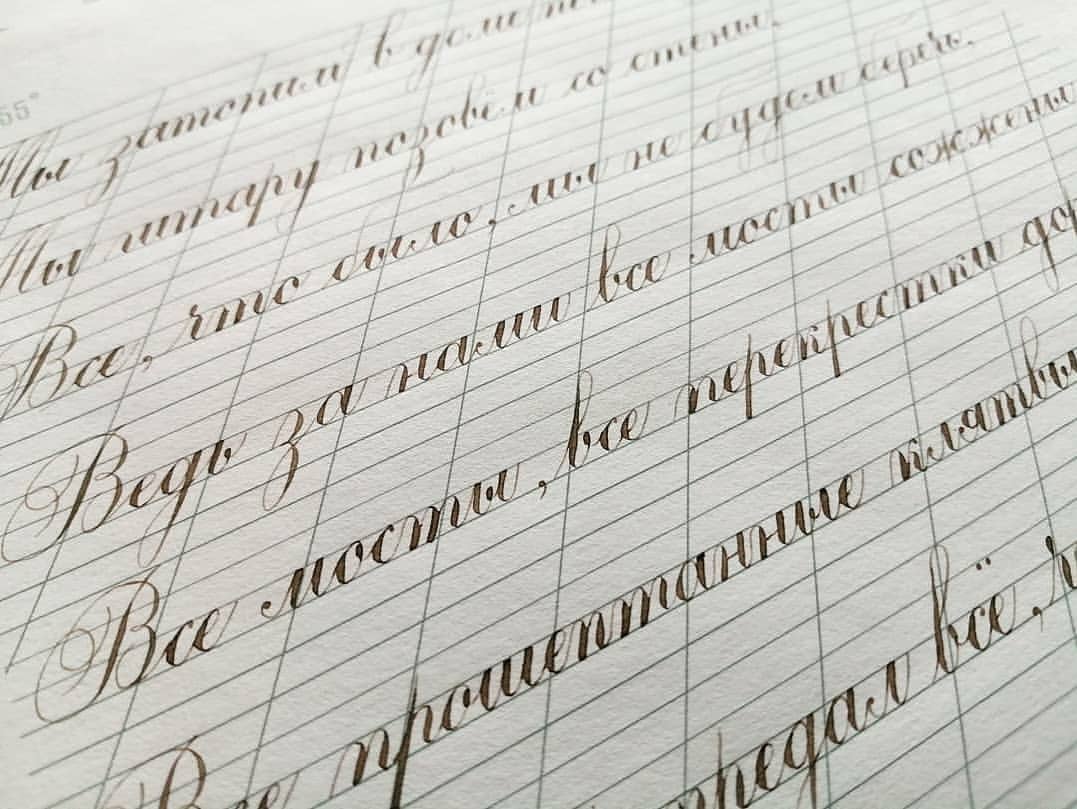 55°
Мы затопим в доме
Мы гитару позовём со стены.
Все, что было, мы не будем беречь.
Ведь за нами все мосты сожжены
Все мосты, все перекрестки
Все прошептанные клятвы
предал всё,